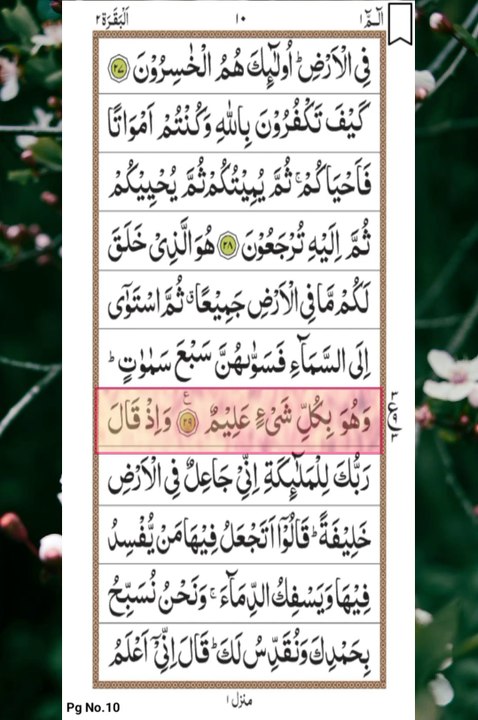 الٓمّٓ ١ ١٠ اَلْبَقَرَة ٢
فِى الْاَرْضِ ؕ اُولٰٓئِكَ هُمُ الْخٰسِرُوْنَ ﴿٢٧﴾
كَيْفَ تَكْفُرُوْنَ بِاللّٰهِ وَكُنْتُمْ اَمْوَاتًا
فَاَحْيَاكُمْ ۚ ثُمَّ يُمِيْتُكُمْ ثُمَّ يُحْيِيْكُمْ
ثُمَّ اِلَيْهِ تُرْجَعُوْنَ ﴿٢٨﴾ هُوَ الَّذِىْ خَلَقَ
لَكُمْ مَّا فِى الْاَرْضِ جَمِيْعًا ۗ ثُمَّ اسْتَوٰٓى
اِلَى السَّمَآءِ فَسَوّٰٮهُنَّ سَبْعَ سَمٰوٰتٍ ؕ
وَهُوَ بِكُلِّ شَىْءٍ عَلِيْمٌ ﴿٢٩﴾ ع وَاِذْ قَالَ
رَبُّكَ لِلْمَلٰٓئِكَةِ اِنِّىْ جَاعِلٌ فِى الْاَرْضِ
خَلِيْفَةً ؕ قَالُوْٓا اَتَجْعَلُ فِيْهَا مَنْ يُّفْسِدُ
فِيْهَا وَيَسْفِكُ الدِّمَآءَ ۚ وَنَحْنُ نُسَبِّحُ
بِحَمْدِكَ وَنُقَدِّسُ لَكَ ؕ قَالَ اِنِّىْٓ اَعْلَمُ
منزل ١
Pg No.10